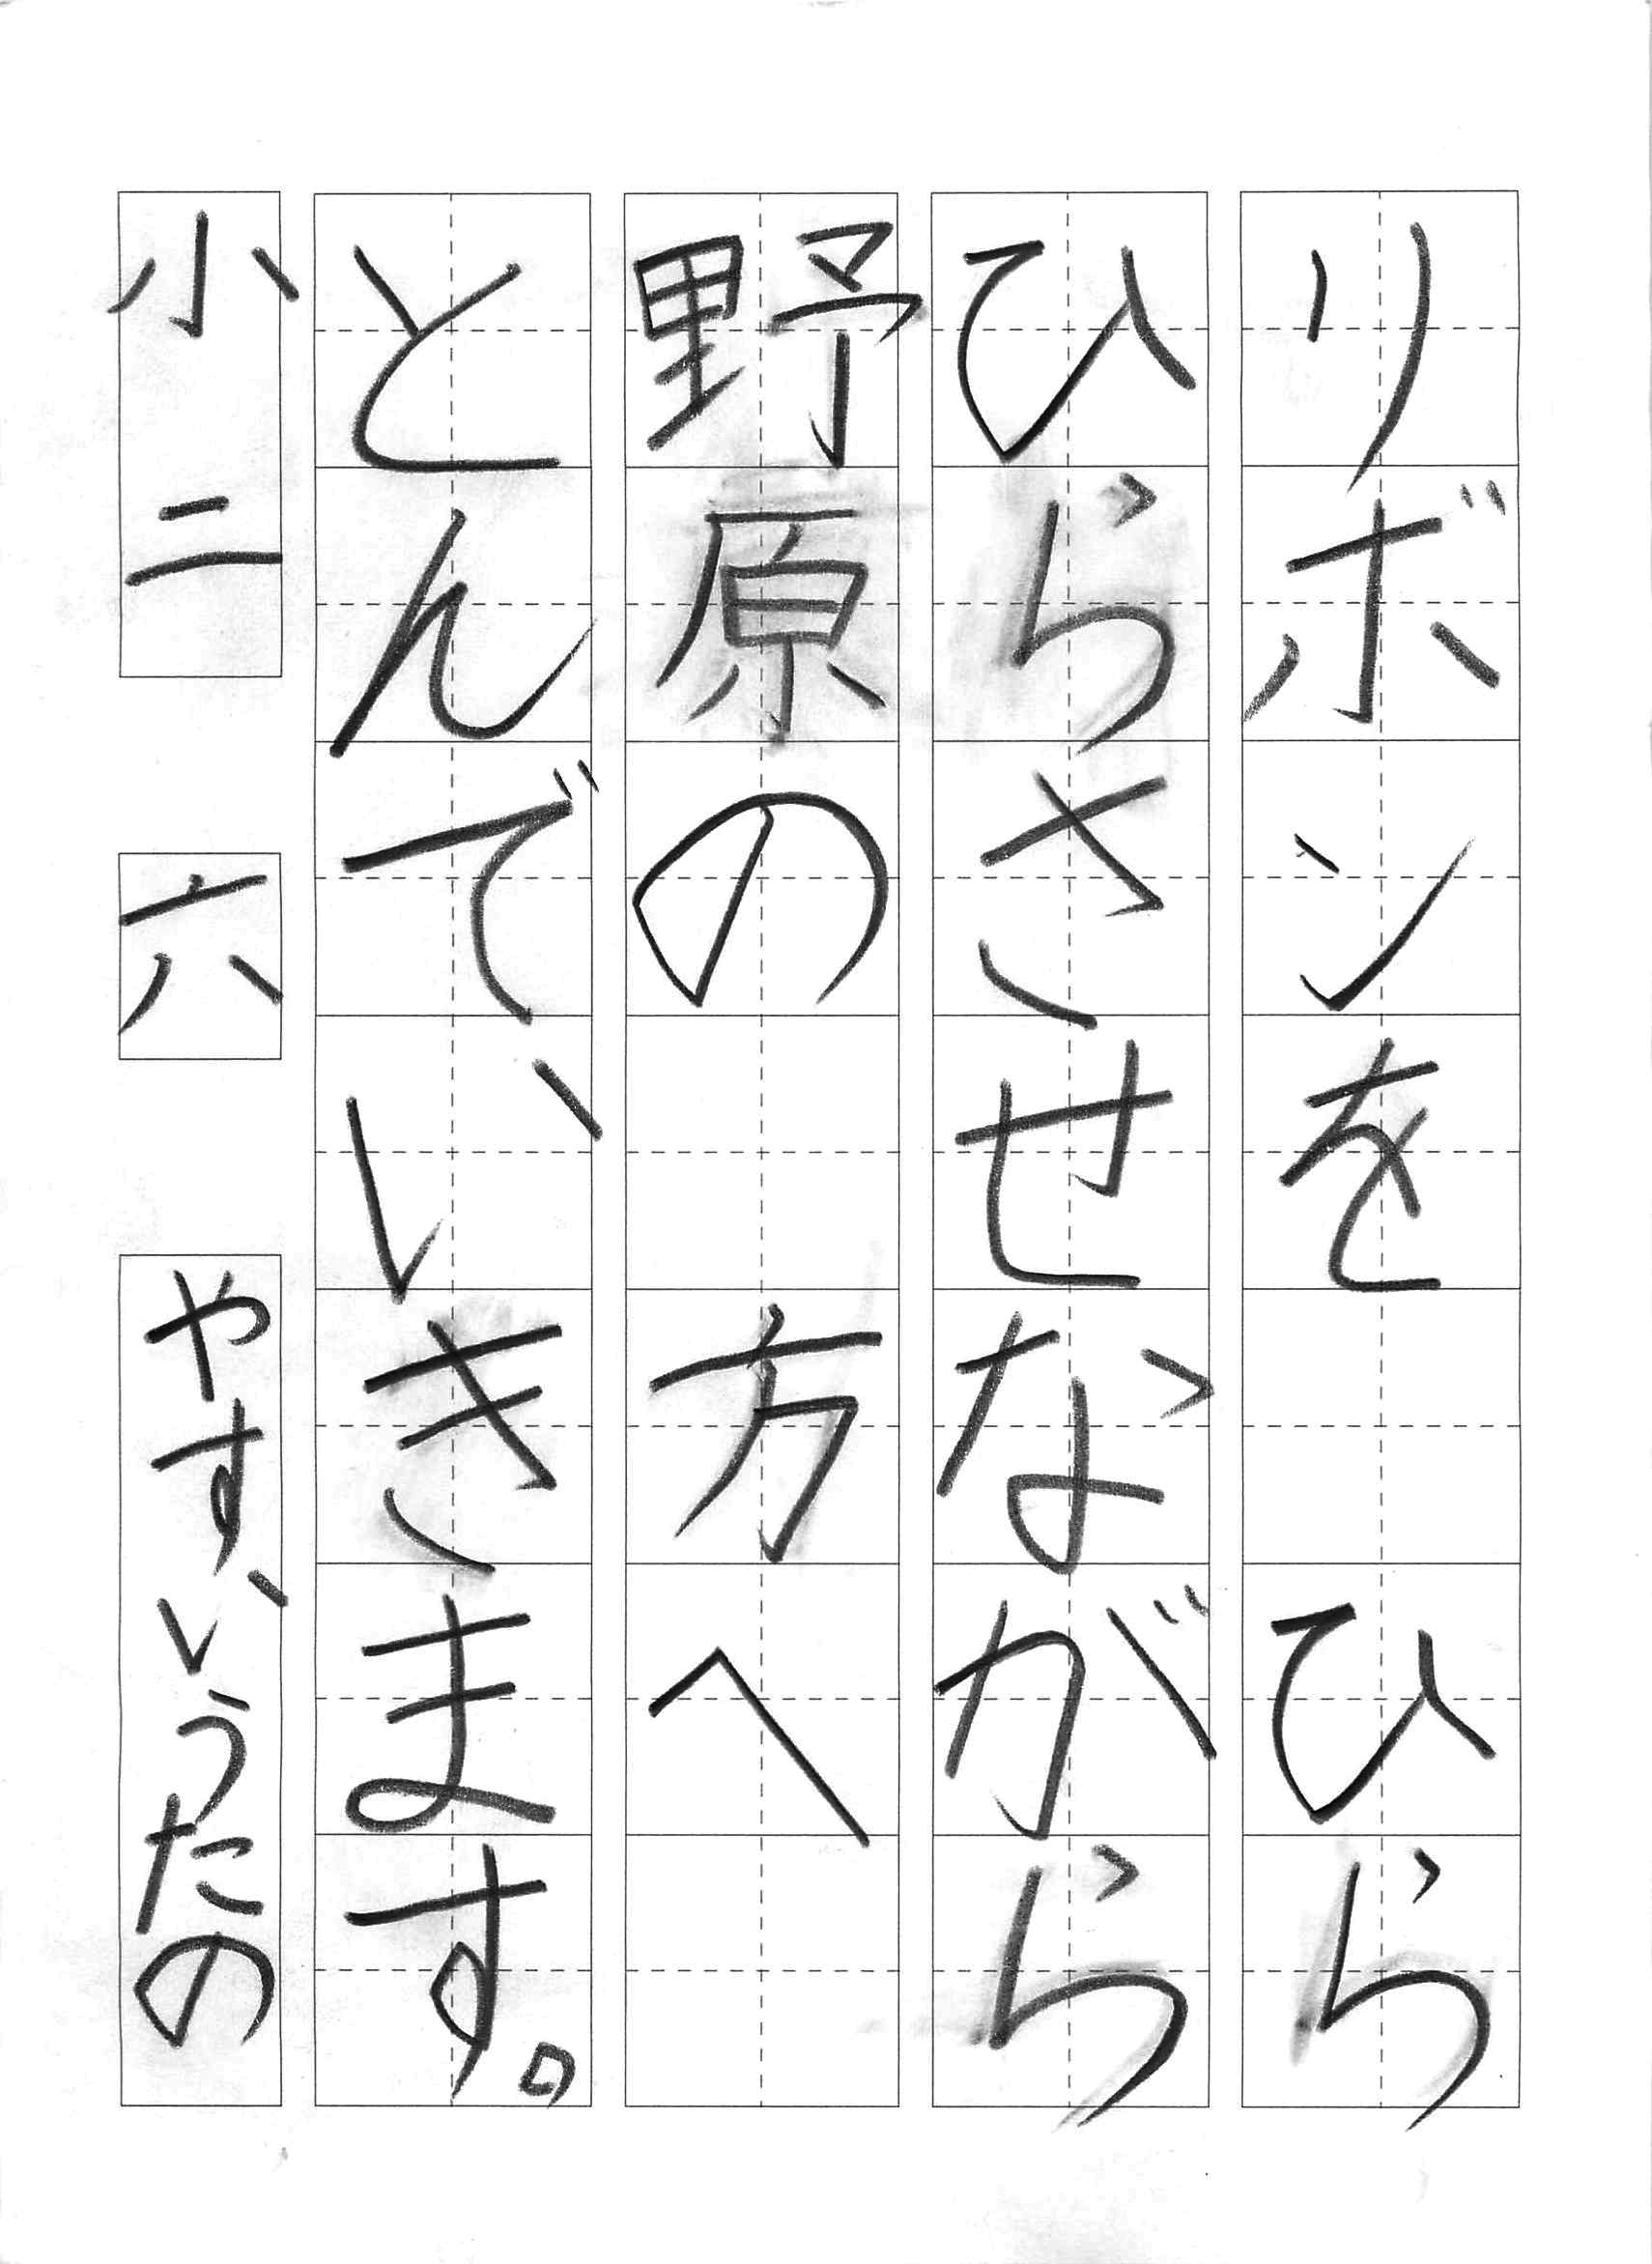 リボンを　ひら
ひらさせながら
野原の　方へ
とんでいきます。
小二　六　やすいうたの